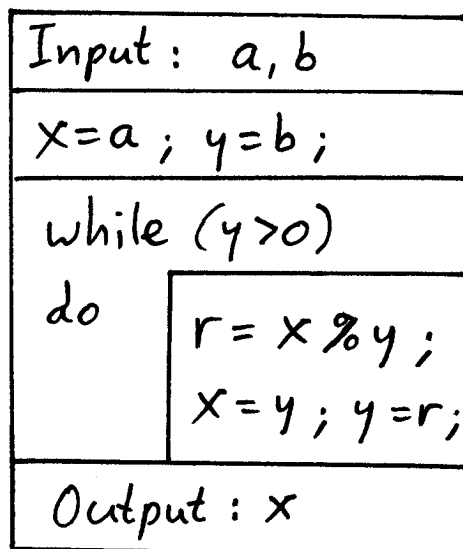 Input: a, b
x=a; y=b;
while (y>0)
do
r = x % y;
x=y; y=r;
Output: x